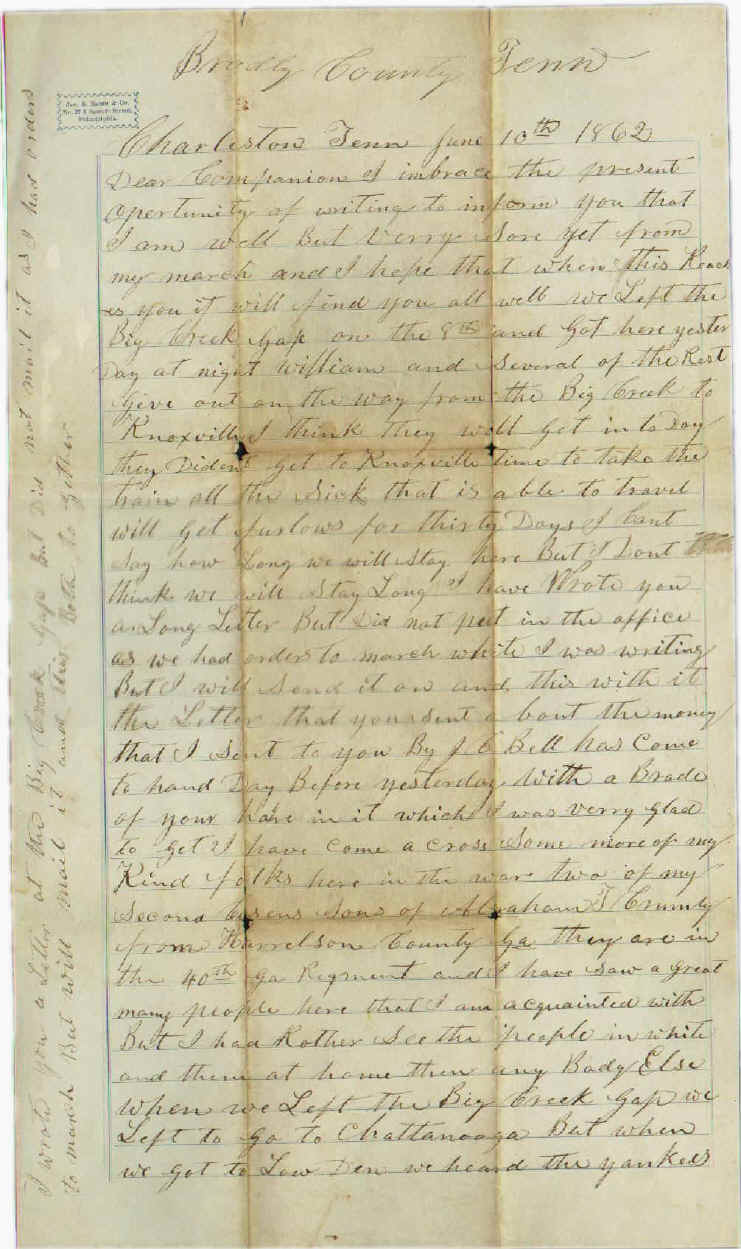 Bradly County Tenn
Charleston Tenn June 10th 1862
Dear Companion I imbrace the present
opertunity of writing to inform you that
I am well But Verry Sore yet from
my march and I hope that when this Reach
es you it will find you all well we Left the
Big Creek Gap on the 8th and Got here yester
Day at night William and Several of the Rest
give out on the way from the Big Creek to
Knoxville I think they will Get in to Day
they Dident get to Knoxville time to take the
train all the Sick that is able to travel
will Get furlows for thirty Days I Cant
Say how Long we will Stay here But I Dont
think we will Stay Long I have Wrote you
a Long Letter But Did not put in the office
as we had orders to march while I was writing
But I will Send it on and this with it
the Letter that you sent a bout the money
that I Sent to you By J C Bell has Come
to hand Day Before yesterday with a Brade
of your hare in it which I was verry glad
to get I have Come a cross Some more of my
Kind folks here in the war two of my
Second Cusens Sons of Abraham Crumly
from Harrelson County Ga they are in
the 40th Ga Regment and I have Saw a great
many people here that I am acquainted with
But I had Rother See the people in white
and them at home then any Body Else
when we Left the Big Creek Gap we
Left to Go to Chattanooga But when
we got to Low Den we heard the yankees
I wrote you a Letter at the Big Creek Gap But Did not mail it as I had orders
to march But will mail it and this Both to gether